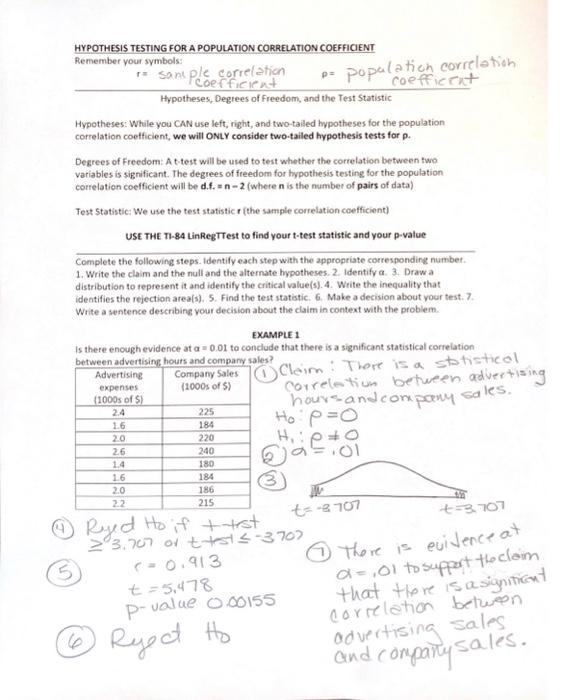 HYPOTHESIS TESTING FOR A POPULATION CORRELATION COEFFICIENT
Remember your symbols:
r= sample correlation coefficient
ρ= population correlation coefficient
Hypotheses, Degrees of Freedom, and the Test Statistic
Hypotheses: While you CAN use left, right, and two-tailed hypotheses for the population
correlation coefficient, we will ONLY consider two-tailed hypothesis tests for ρ.
Degrees of Freedom: A t-test will be used to test whether the correlation between two
variables is significant. The degrees of freedom for hypothesis testing for the population
correlation coefficient will be d.f. = n – 2 (where n is the number of pairs of data)
Test Statistic: We use the test statistic r (the sample correlation coefficient)
USE THE TI-84 LinRegTTest to find your t-test statistic and your p-value
Complete the following steps. Identify each step with the appropriate corresponding number.
1. Write the claim and the null and the alternate hypotheses. 2. Identify α. 3. Draw a
distribution to represent it and identify the critical value(s). 4. Write the inequality that
identifies the rejection area(s). 5. Find the test statistic. 6. Make a decision about your test. 7.
Write a sentence describing your decision about the claim in context with the problem.
EXAMPLE 1
Is there enough evidence at α = 0.01 to conclude that there is a significant statistical correlation
between advertising hours and company sales?
Advertising expenses (1000s of $) Company Sales (1000s of $)
2.4 225
1.6 184
2.0 220
2.6 240
1.4 180
1.6 184
2.0 186
2.2 215
① Claim: There is a statistical
correlation between advertising
hours and company sales.
H₀: ρ=0
H₁: ρ≠0
② α=.01
③
t=-3.707 t=3.707
④ Reject Ho if t-test
≥3.707 or t test ≤-3.707
⑤ r = 0.913
t = 5.478
p-value 0.00155
⑥ Reject Ho
⑦ There is evidence at
α=.01 to support the claim
that there is a significant
correlation between
advertising sales
and company sales.